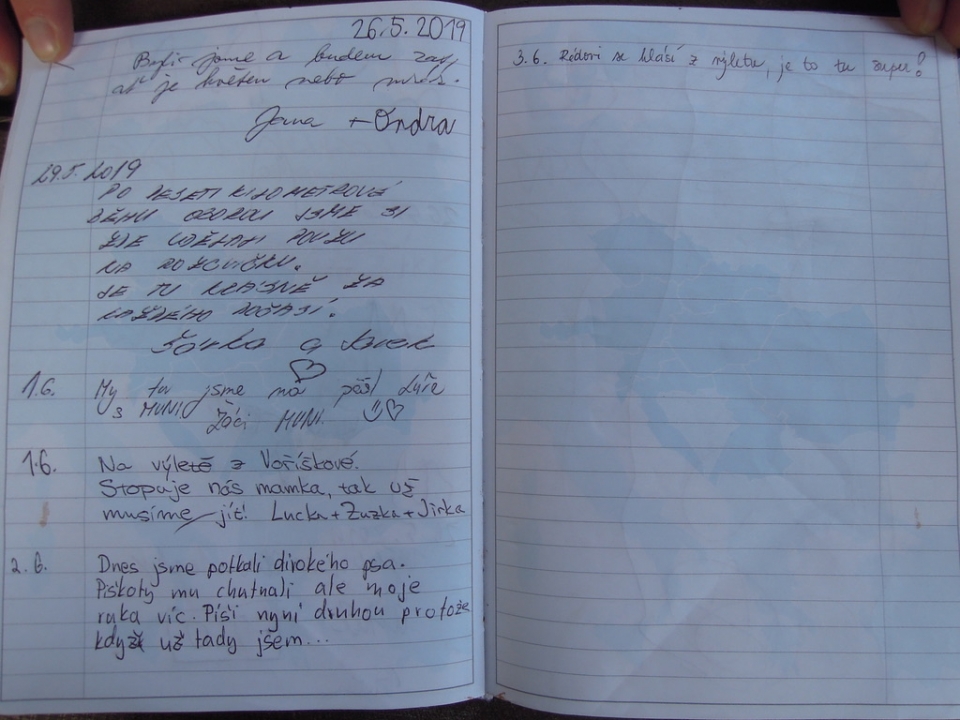 26.5.2019
Byli jsme a budem zas,
ať je květen nebo mráz.
Jana + Ondra
29.5.2019
PO DESETI KILOMETROVÉ
BĚHU OBOROU JSME SI
ZDE UDĚLALI PAUZU
NA
JE TU KRÁSNĚ ZA
KAŽDÉHO POČASÍ.
Šárka a
1.6. My tu jsme na
z MUNI. Žáci MUNI.
1.6. Na výletě z Voříškové.
Stopuje nás mamka, tak už
musíme jít! Lucka + Zuzka + Jirka
2.6. Dnes jsme potkali divokého psa.
Piškoty mu chutnali ale moje
ruka víc. Píši nyní druhou protože
když už tady jsem...
3.6. se hlásí z výletu, je to tu super!